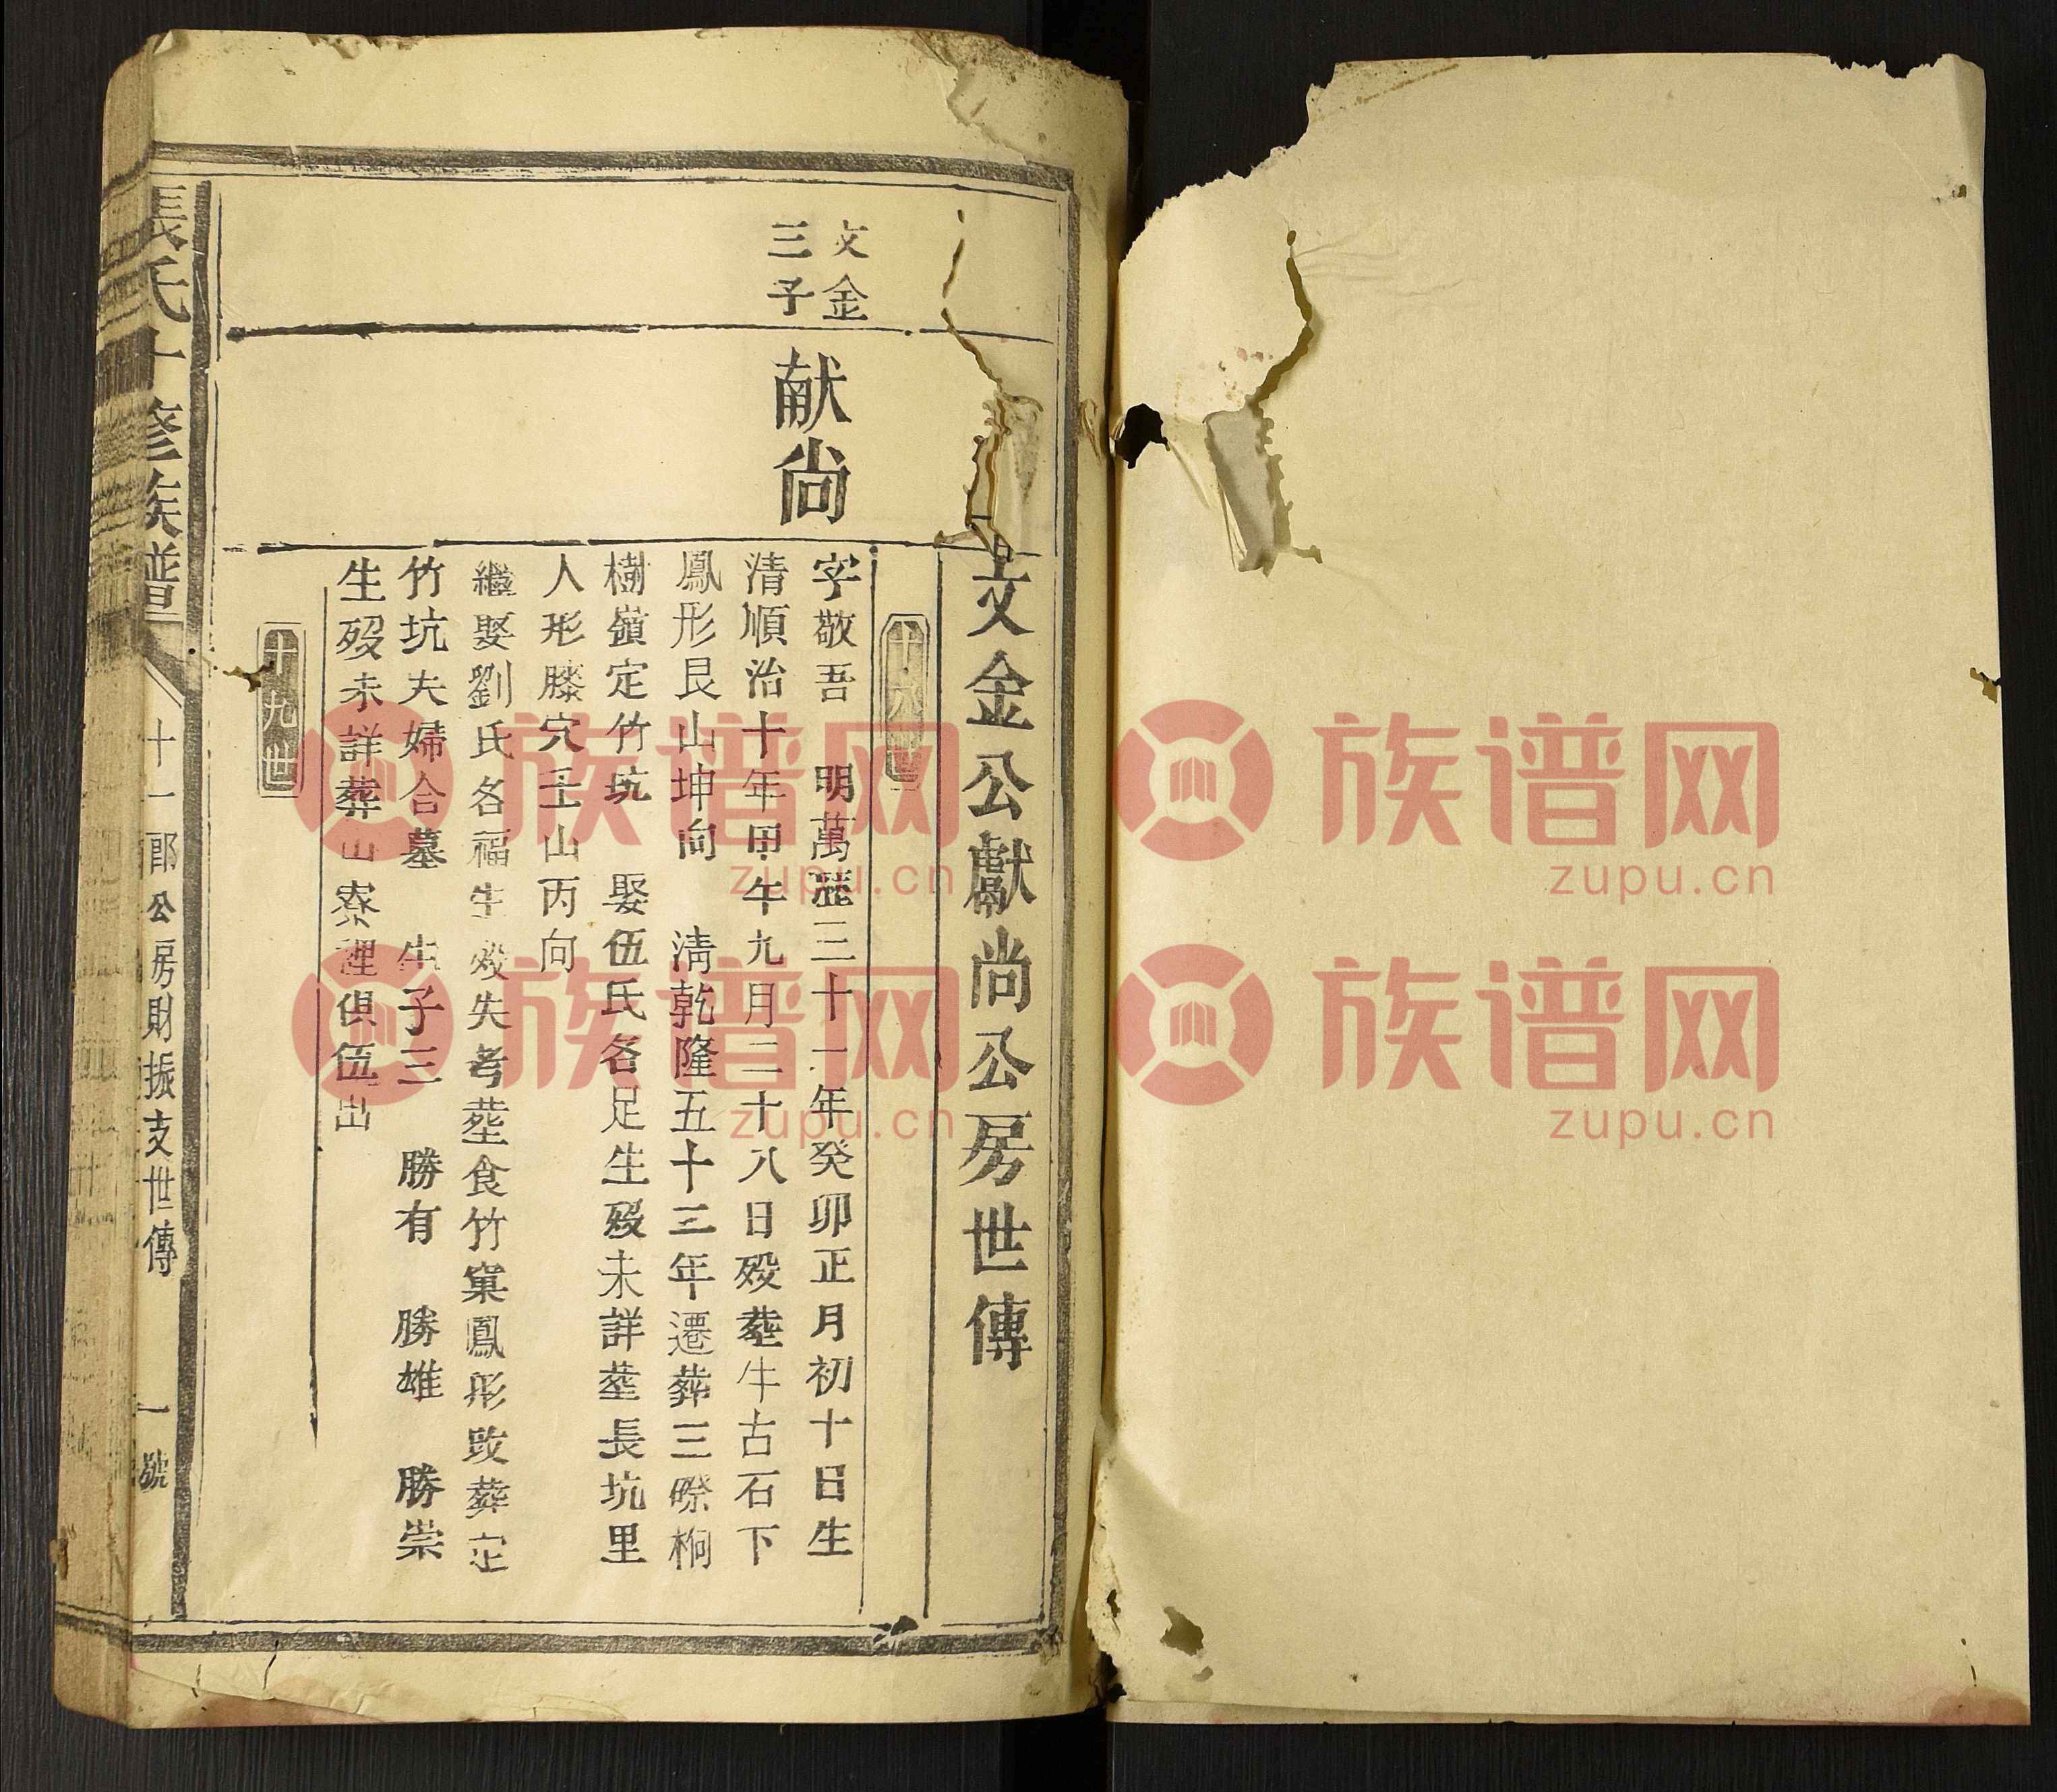 文金公獻尚公房世傳
十八世
文金
三子
献尚
字敬吾　明萬歷三十一年癸卯正月初十日生
清順治十年甲午九月二十八日歿塟牛古石下
鳳形艮山坤向　清乾隆五十三年遷葬三磜桐
樹嶺定竹坑　娶伍氏各足生歿未詳塟長坑里
人形膝穴壬山丙向
繼娶劉氏名福生歿失考塟食竹窠鳳形改葬定
竹坑夫婦合墓　生子三　勝有　勝雄　勝崇
生歿未詳葬山寮裡俱伍出
十九世
張氏十修族譜
十一郎公房財振支世傳
一號
族谱网
zupu.cn
族谱网
zupu.cn
族谱网
zupu.cn
族谱网
zupu.cn